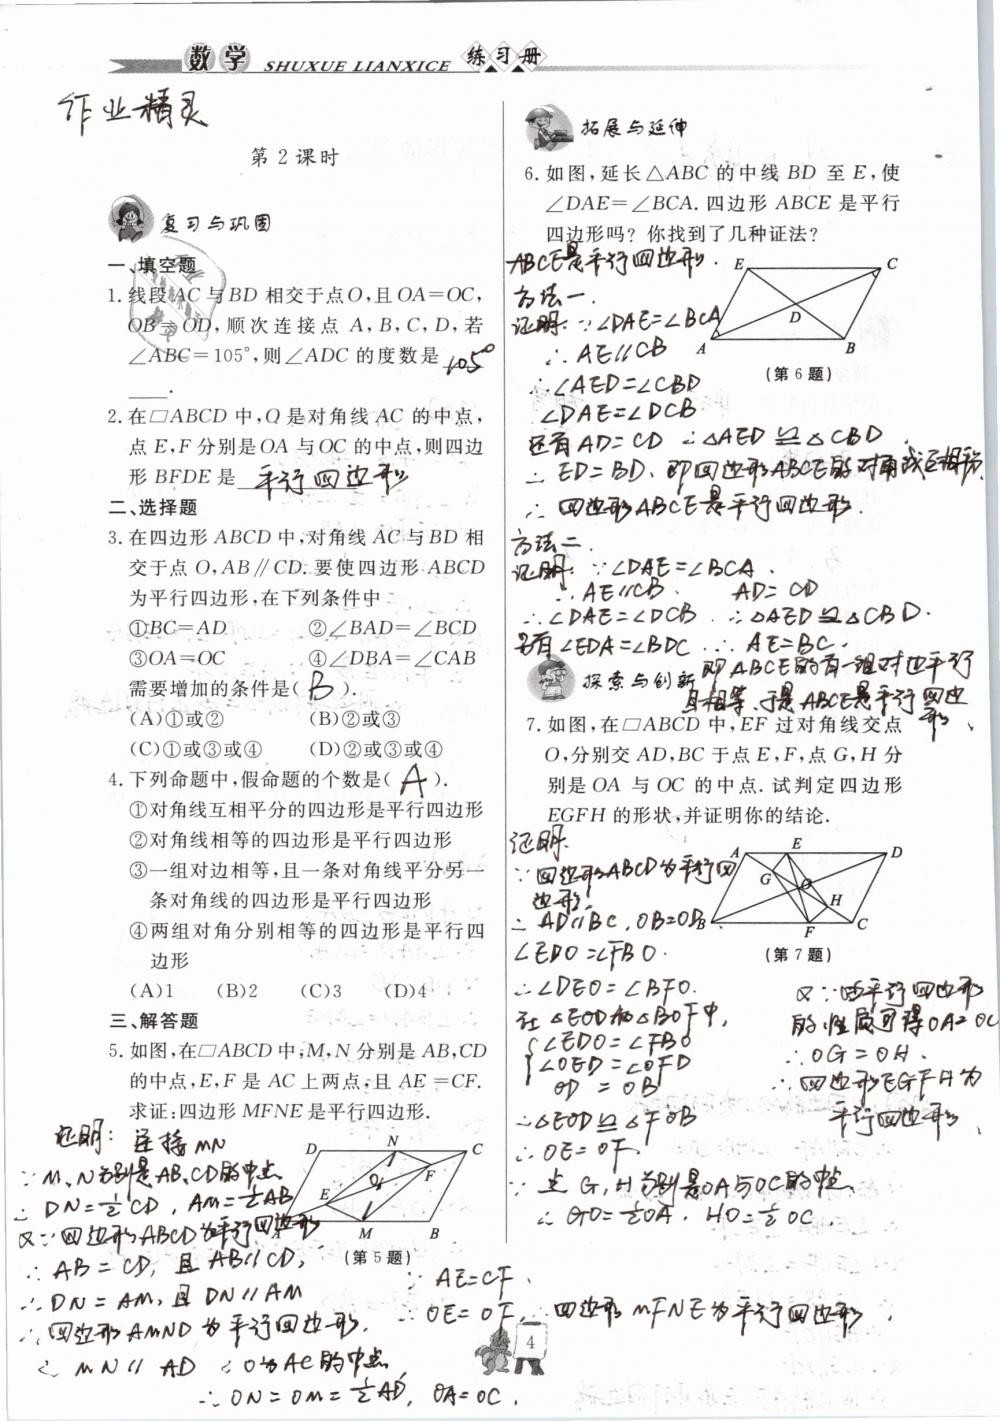 数学 SHUXUE LIANXICE 练习册
作业精灵
第2课时
复习与巩固
一、填空题
1.线段AC与BD相交于点O,且OA=OC,
OB=OD,顺次连接点A,B,C,D,若
∠ABC=105°,则∠ADC的度数是 105°
____.
2.在□ABCD中,O是对角线AC的中点,
点E,F分别是OA与OC的中点,则四边
形BFDE是 平行四边形
二、选择题
3.在四边形ABCD中,对角线AC与BD相
交于点O,AB∥CD.要使四边形ABCD
为平行四边形,在下列条件中
①BC=AD ②∠BAD=∠BCD
③OA=OC ④∠DBA=∠CAB
需要增加的条件是( B ).
(A)①或② (B)②或③
(C)①或③或④ (D)②或③或④
4.下列命题中,假命题的个数是( A ).
①对角线互相平分的四边形是平行四边形
②对角线相等的四边形是平行四边形
③一组对边相等,且一条对角线平分另一
条对角线的四边形是平行四边形
④两组对角分别相等的四边形是平行四
边形
(A)1 (B)2 (C)3 (D)4
三、解答题
5.如图,在□ABCD中,M,N分别是AB,CD
的中点,E,F是AC上两点,且AE=CF.
求证:四边形MFNE是平行四边形.
证明: 连接MN
∵M、N分别是AB、CD的中点
∴DN=½CD,AM=½AB
又∵四边形ABCD为平行四边形
∴AB=CD,且AB∥CD,
∴DN=AM,且DN∥AM
∴四边形AMND为平行四边形.
∴MN∥AD ∴O为AC的中点
∴ON=OM=½AD,OA=OC,
D N C
E O F
A M B
(第5题)
∵AE=CF,
∴OE=OF,∴四边形MFNE为平行四边形.
拓展与延伸
6.如图,延长△ABC的中线BD至E,使
∠DAE=∠BCA.四边形ABCE是平行
四边形吗?你找到了几种证法?
ABCE是平行四边形.
方法一.
证明:∵∠DAE=∠BCA
∴AE∥CB
∴∠AED=∠CBD
∠DAE=∠DCB
还有AD=CD ∴△AED≌△CBD
∴ED=BD、即四边形ABCE的对角线互相平分
∴四边形ABCE是平行四边形.
E C
D
A B
(第6题)
方法二.
证明:∵∠DAE=∠BCA.
∴AE∥CB. AD=CD
∴∠DAE=∠DCB.∴△AED≌△CBD.
另有∠EDA=∠BDC ∴AE=BC.
即ABCE的有一组对边平行
且相等、于是ABCE是平行四边
形、
探索与创新
7.如图,在□ABCD中,EF过对角线交点
O,分别交AD,BC于点E,F,点G,H分
别是OA与OC的中点.试判定四边形
EGFH的形状,并证明你的结论.
证明:
∵四边形ABCD为平行四
边形.
∴AD∥BC,OB=OD
∠EDO=∠FBO.
∴∠DEO=∠BFO.
在△EOD和△BOF中,
∠EDO=∠FBO
∠OED=∠OFD
OD=OB
∴△EOD≌△FOB
∴OE=OF.
∵点G,H分别是OA与OC的中点
∴GO=½OA,HO=½OC.
A E D
G O
H
B F C
(第7题)
又∵由平行四边形
的性质可得OA=OC
∴OG=OH.
∴四边形EGFH为
平行四边形
4